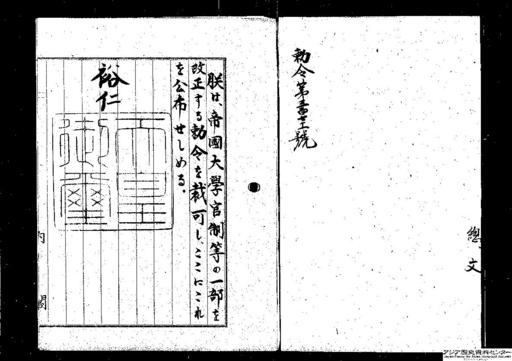 總、文
朕は、帝國大學官制等の一部を
改正する勅令を裁可し、ここにこれ
を公布せしめる。
裕仁
天皇
御璽
内閣
アジア歴史資料センター